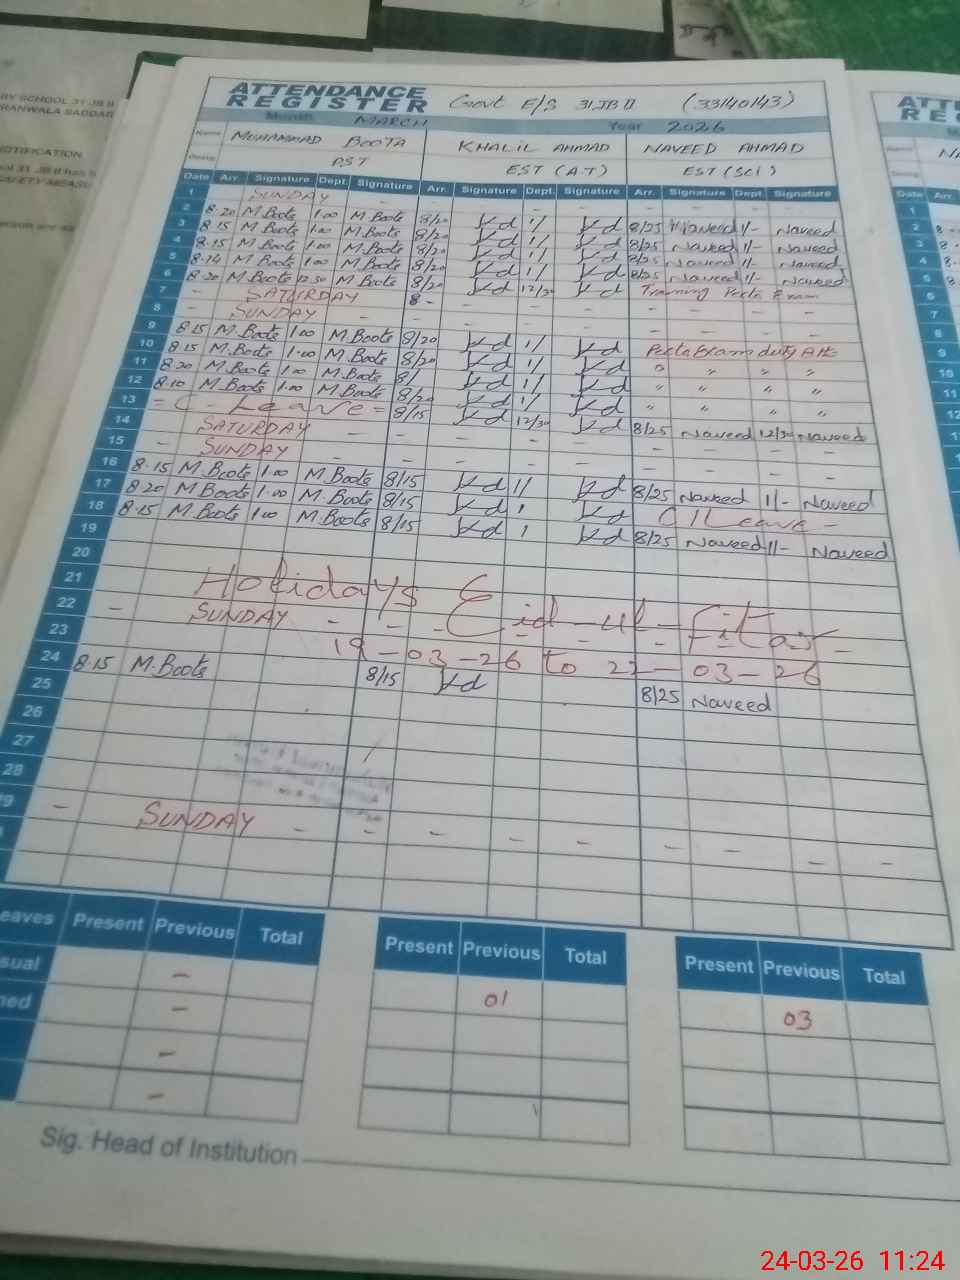 RY SCHOOL 31 JB II
RANWALA SADDAR
NOTIFICATION
ATTENDANCE
REGISTER
Govt E/S 31 JB II (33140143)
Month MARCH Year 2026
Name MUHAMMAD BOOTA KHALIL AHMAD NAVEED AHMAD
Desig. PST EST (A.T) EST (SCI)
Date Arr. Signature Dept. Signature Arr. Signature Dept. Signature Arr. Signature Dept. Signature
1 SUNDAY - - - - - - - -
2 8.20 M.Boota 1.00 M.Boota 8/20 Kd 1/ Kd 8/25 Naveed 1/- Naveed
3 8.15 M.Boota 1.00 M.Boota 8/20 Kd 1/ Kd 8/25 Naveed 1/- Naveed
4 8.15 M.Boota 1.00 M.Boota 8/20 Kd 1/ Kd 8/25 Naveed 1/- Naveed
5 8.14 M.Boota 1.00 M.Boota 8/20 Kd 1/ Kd 8/25 Naveed 1/- Naveed
6 8.20 M.Boota 12.30 M.Boota 8/20 Kd 12/30 Kd Training Pecta Exam
7 - SATURDAY 8 - - - - -
8 - SUNDAY - - - - - - -
9 8.15 M.Boota 1.00 M.Boota 8/20 Kd 1/ Kd Pecta Exam duty
10 8.15 M.Boota 1.00 M.Boota 8/20 Kd 1/ Kd " " " "
11 8.20 M.Boota 1.00 M.Boota 8/ Kd 1/ Kd " " " "
12 8.10 M.Boota 1.00 M.Boota 8/20 Kd 1/ Kd " " " "
13 = C - Leave = 8/15 Kd 12/30 Kd 8/25 Naveed 12/30 Naveed
14 SATURDAY - - - - - - - -
15 - SUNDAY - - - - - - - -
16 8.15 M.Boota 1.00 M.Boota 8/15 Kd 1/ Kd 8/25 Naveed 1/- Naveed
17 8.20 M.Boota 1.00 M.Boota 8/15 Kd 1 Kd C/Leave -
18 8.15 M.Boota 1.00 M.Boota 8/15 Kd 1 Kd 8/25 Naveed 1/- Naveed
19
20
21 Holidays Eid-ul-Fitar
22 - SUNDAY - - - - - - -
23 19-03-26 to 23-03-26
24 8.15 M.Boota 8/15 Kd 8/25 Naveed
25
26
27
28
- SUNDAY - - - - - - - - -
Present Previous Total Present Previous Total Present Previous Total
- 01 03
-
-
-
Sig. Head of Institution
24-03-26 11:24